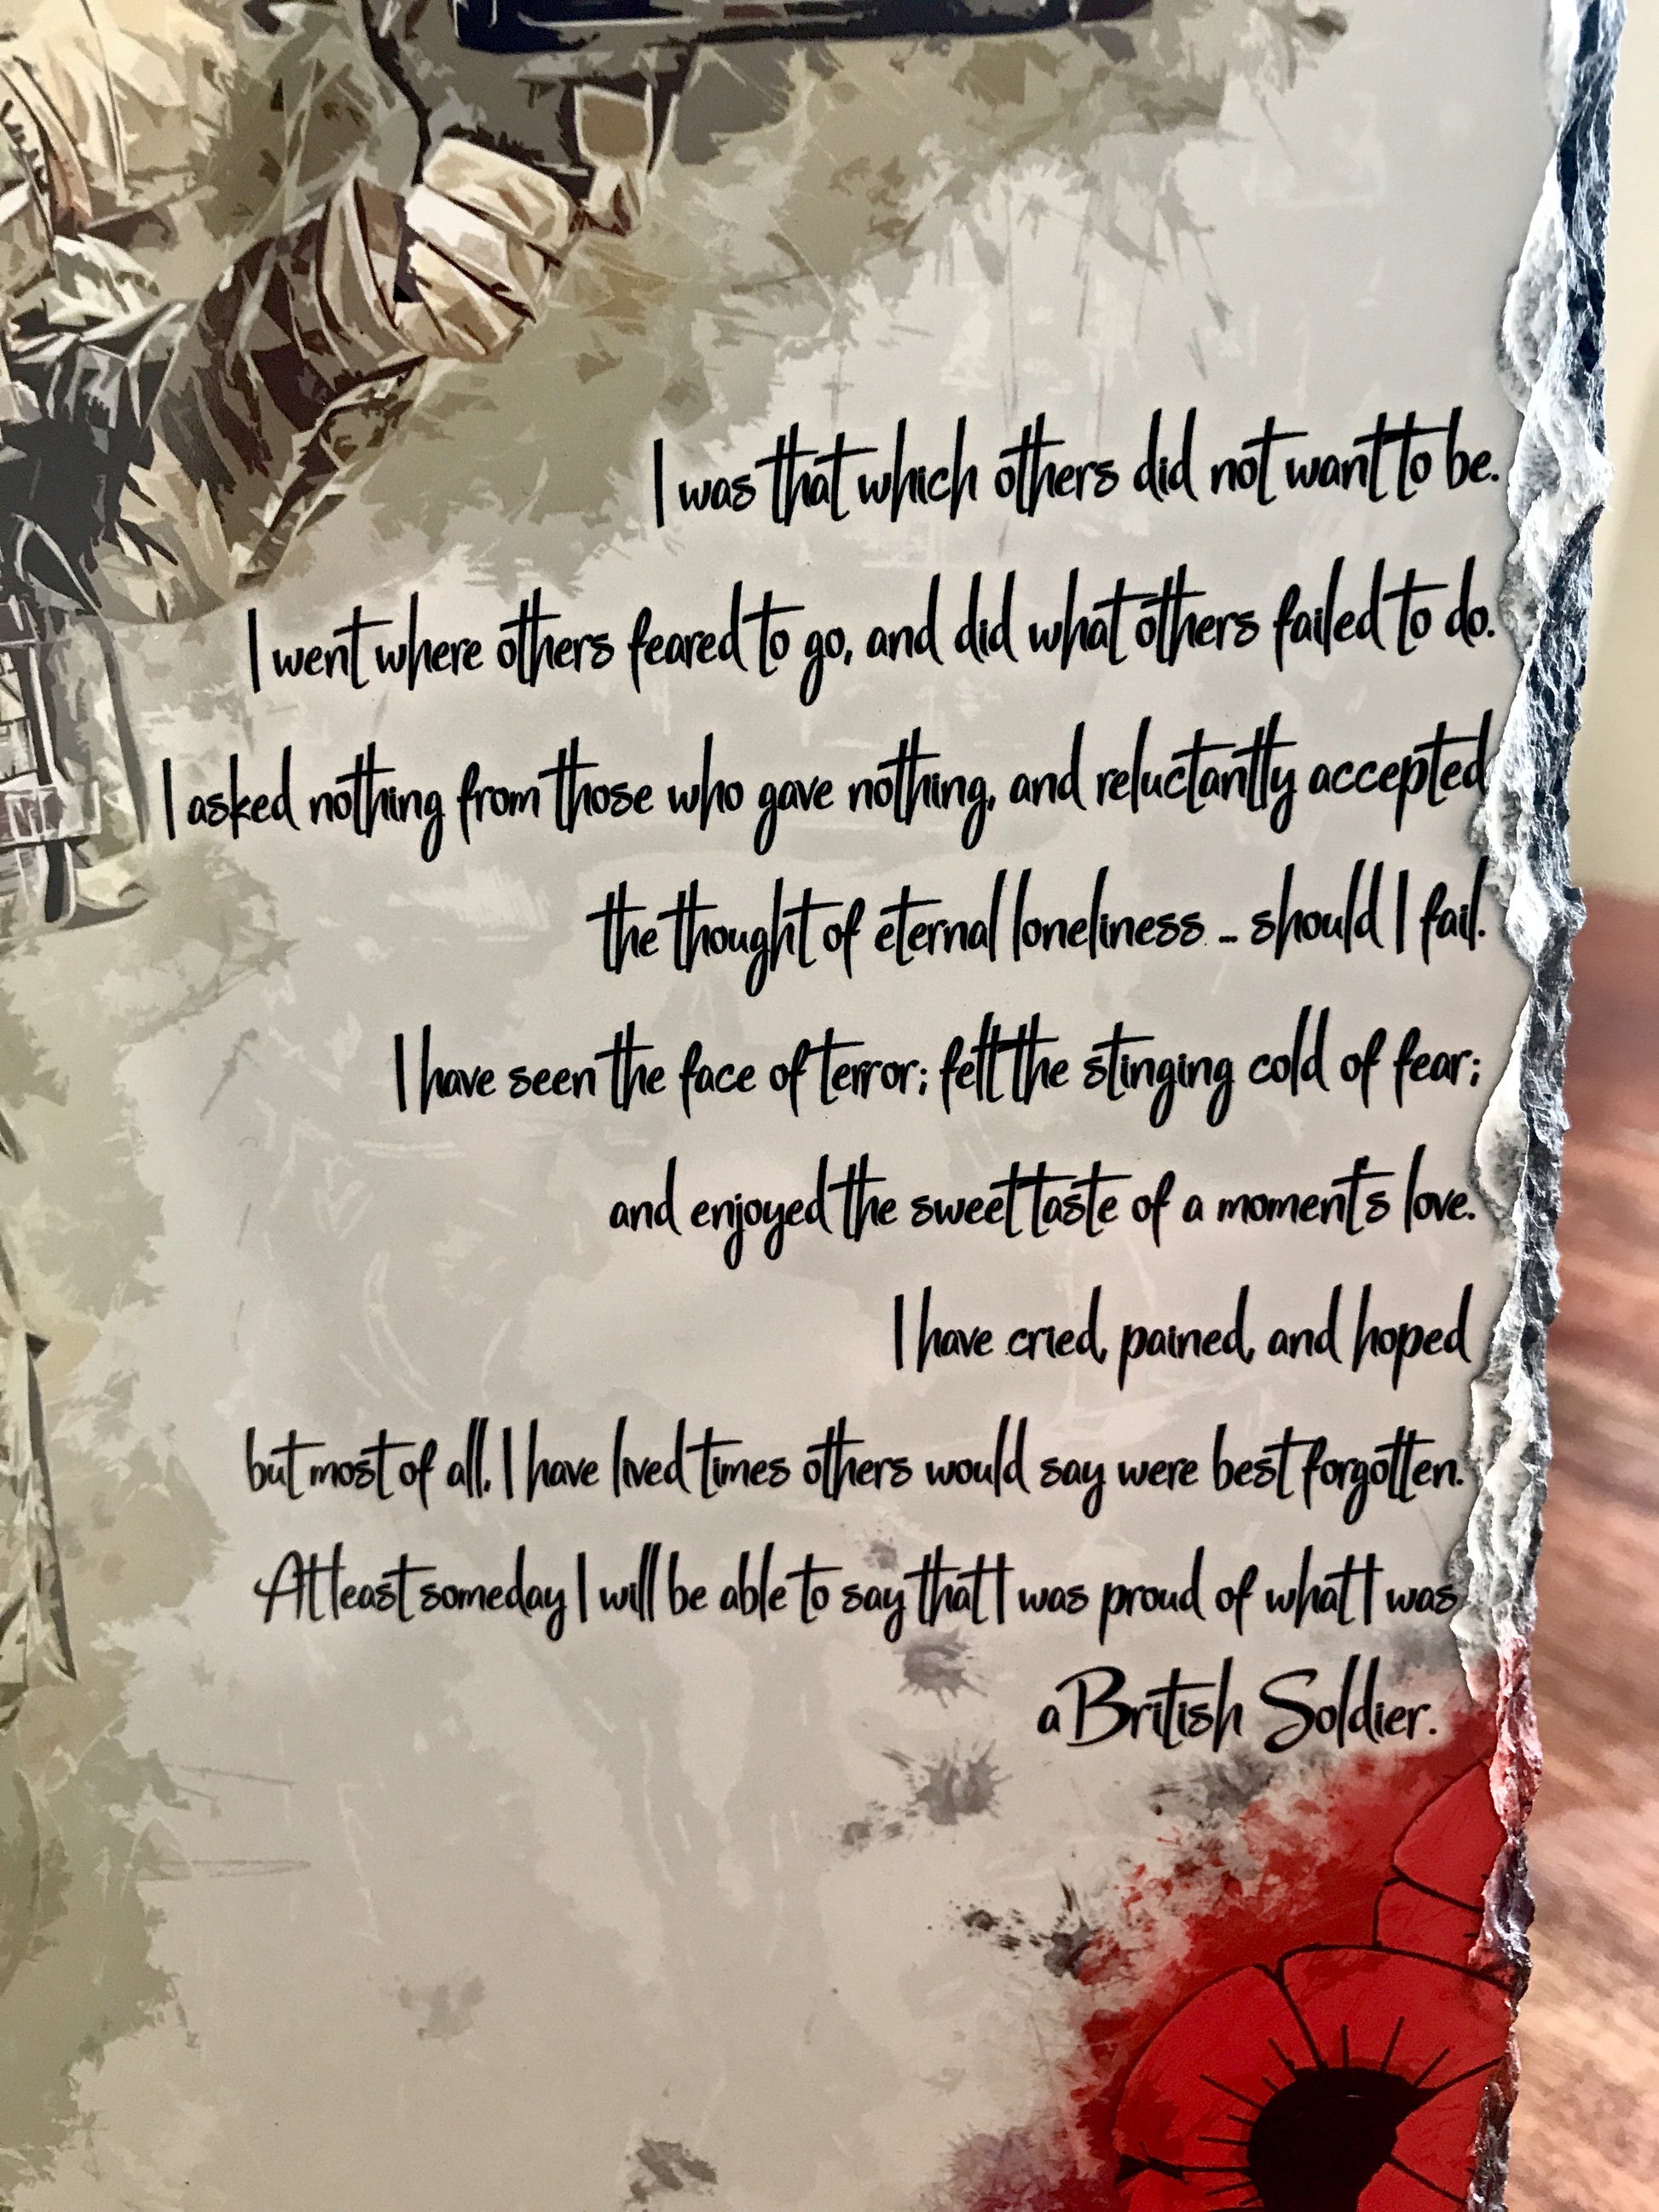 I was that which others did not want to be.
I went where others feared to go, and did what others failed to do.
I asked nothing from those who gave nothing, and reluctantly accepted
the thought of eternal loneliness ... should I fail.
I have seen the face of terror; felt the stinging cold of fear;
and enjoyed the sweet taste of a moment's love.
I have cried, pained, and hoped
but most of all, I have lived times others would say were best forgotten.
At least someday I will be able to say that I was proud of what I was
a British Soldier.